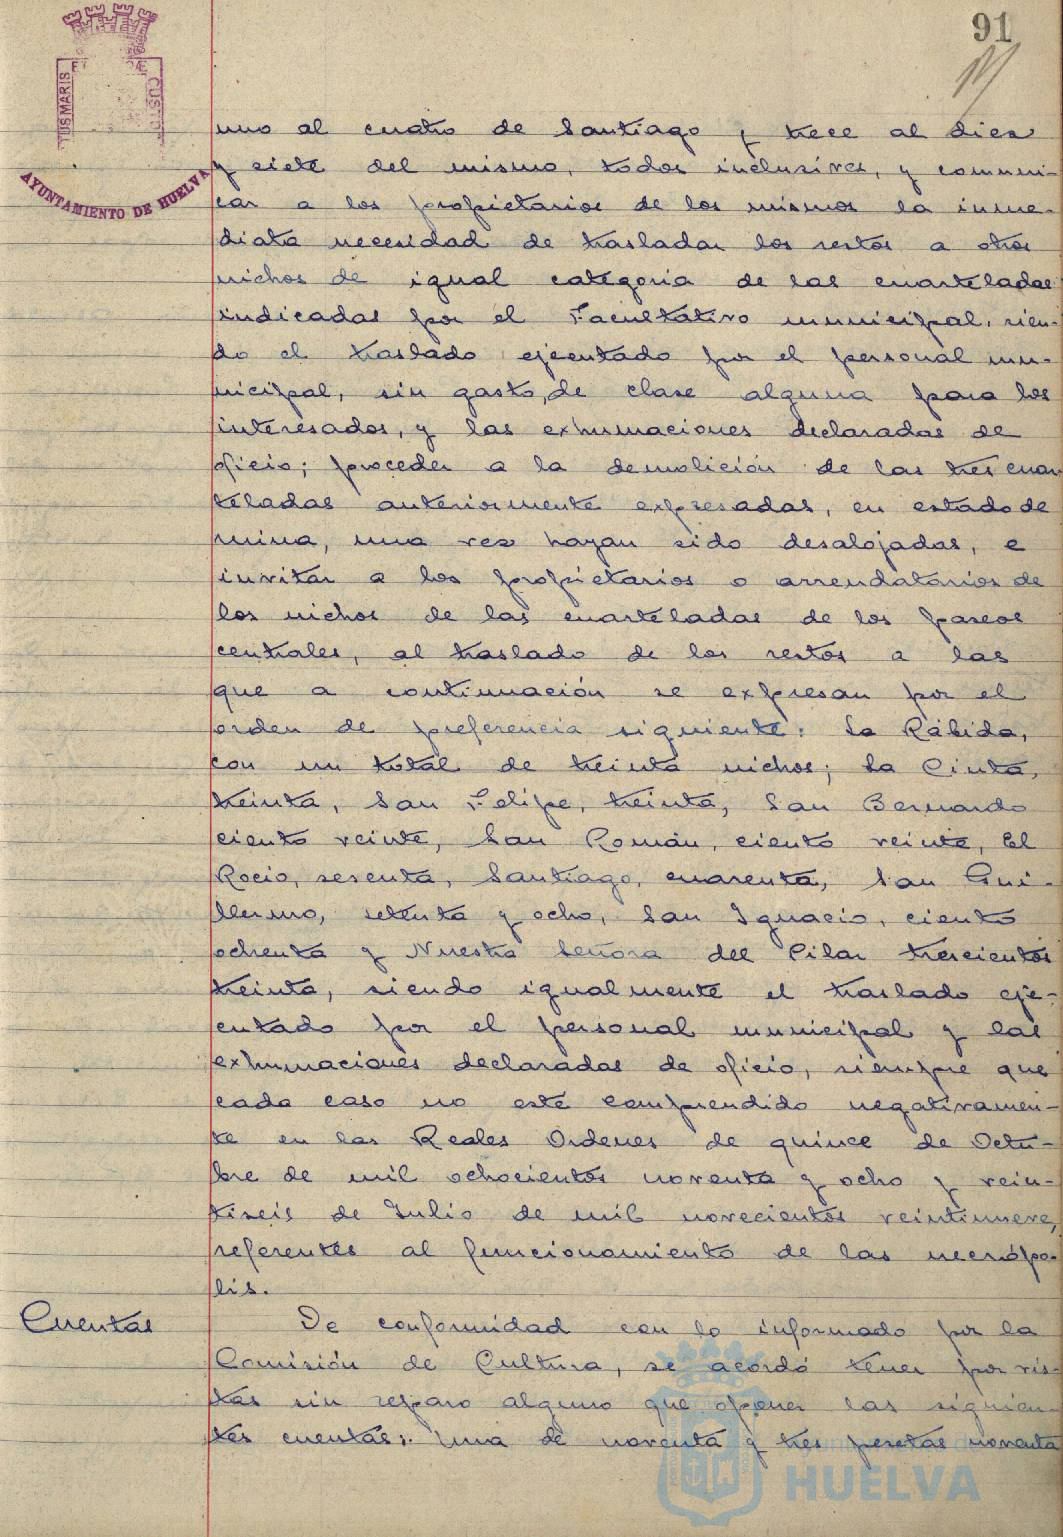 91
PORTUS MARIS ET TERRÆ CUSTODIA
AYUNTAMIENTO DE HUELVA
uno al cuatro de Santiago y trece al diez
y siete del mismo, todos inclusives, y comuni-
car a los propietarios de los mismos la inme-
diata necesidad de trasladar los restos a otros
nichos de igual categoria de las cuarteladas
indicadas por el Facultativo municipal, sien-
do el traslado ejecutado por el personal mu-
nicipal, sin gasto, de clase alguna para los
interesados, y las exhumaciones declaradas de
oficio; proceder a la demolición de las tres cuar
teladas anteriormente expresadas, en estado de
ruina, una vez hayan sido desalojadas, e
invitar a los propietarios o arrendatarios de
los nichos de las cuarteladas de los paseos
centrales, al traslado de los restos a las
que a continuación se expresan por el
orden de preferencia siguiente: La Rábida,
con un total de treinta nichos; La Cinta,
treinta, San Felipe, treinta, San Bernardo
ciento veinte, San Román, ciento veinte, El
Rocio, sesenta, Santiago, cuarenta, San Gui-
llermo, setenta y ocho, San Ignacio, ciento
ochenta y Nuestra Señora del Pilar trescientos
treinta, siendo igualmente el traslado eje-
cutado por el personal municipal y las
exhumaciones declaradas de oficio, siempre que
cada caso no esté comprendido negativamen-
te en las Reales Ordenes de quince de Octu-
bre de mil ochocientos noventa y ocho y vein-
tiseis de Julio de mil novecientos veintinueve,
referentes al funcionamiento de las necrópo-
lis.
Cuentas
De conformidad con lo informado por la
Comisión de Cultura, se acordó tener por vis-
tas sin reparo alguno que oponer las siguien-
tes cuentas: Una de noventa y tres pesetas noventa
HUELVA